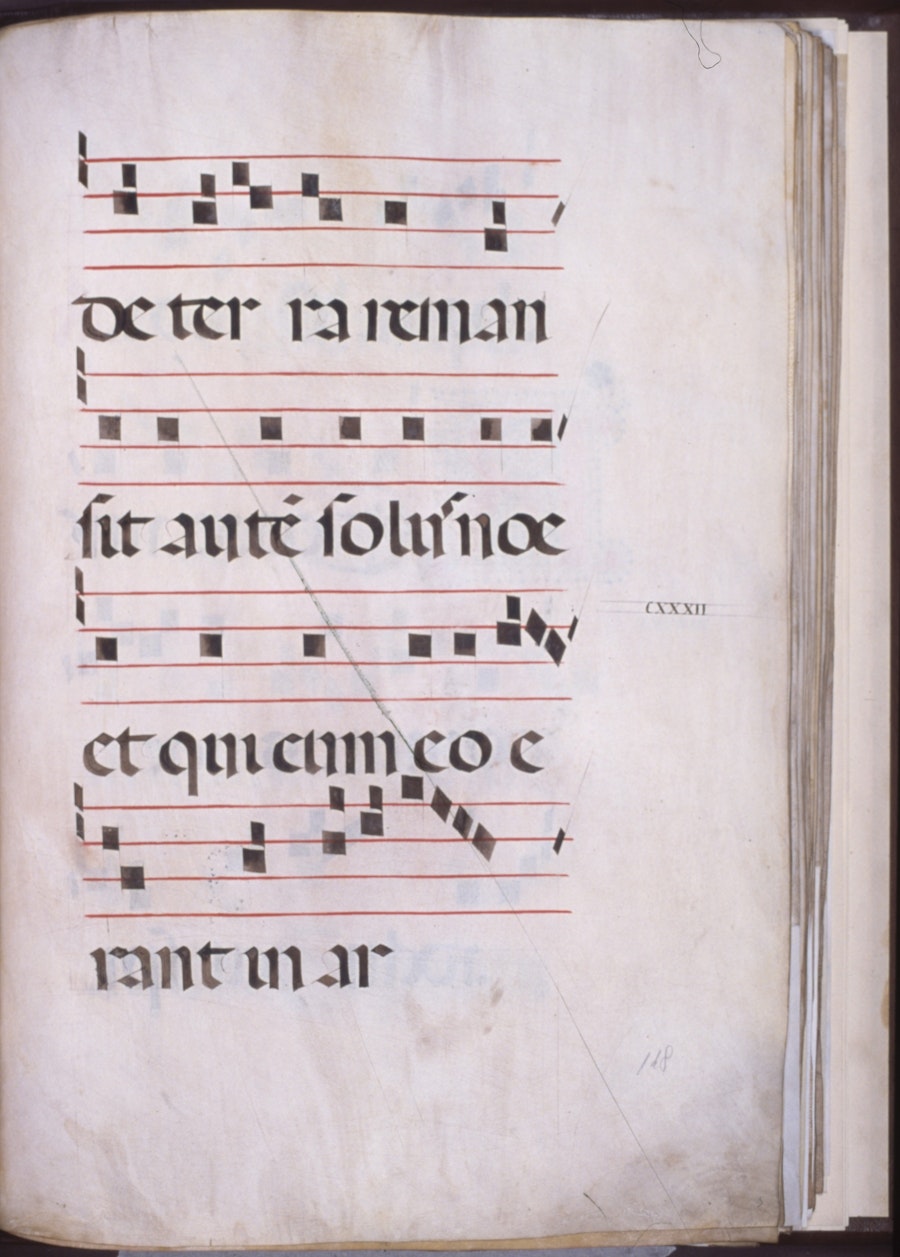 de ter ra reman
sit autē solus noe
et qui cum eo e
CXXXII
rant in ar
118